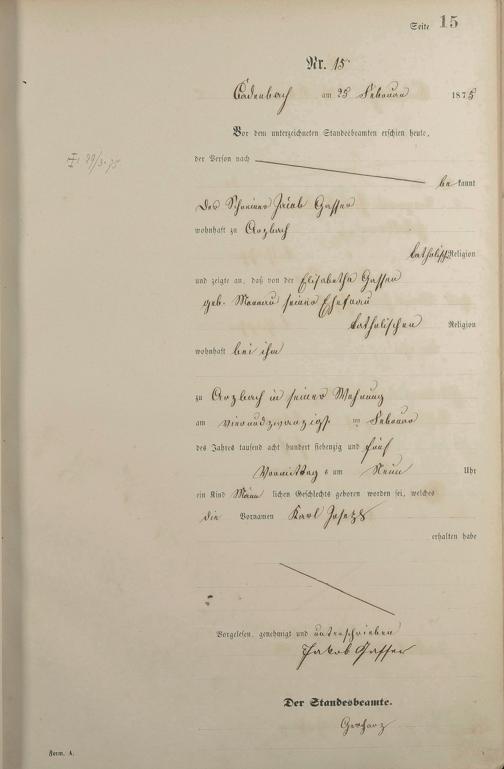 Seite 15
Nr. 15
Cadenbach am 25 Februar 1875
Vor dem unterzeichneten Standesbeamten erschien heute,
der Person nach
bekannt
der Schreiner Jacob Gasser
wohnhaft zu Arzbach
katholisch Religion
und zeigte an, daß von der Elisabetha Gassen
geb. seiner Ehefrau
katholischen Religion
wohnhaft bei ihm
zu Arzbach in seiner Wohnung
am vierundzwanzigst en Februar
des Jahres tausend acht hundert siebenzig und fünf
Vormittags um Neun Uhr
ein Kind Männ lichen Geschlechts geboren worden sei, welches
die Vornamen Karl Joseph
erhalten habe
Vorgelesen, genehmigt und unterschrieben
Jakob Gasser
Der Standesbeamte.
Gerharz
Form. A.